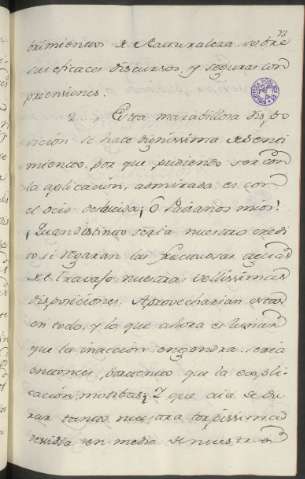 brimientos de Naturaleza sobre
sus eficaces discursos, y seguras com
prensiones.
2. Esta marabillosa dispo
sición se hace dignissima de senti
miento, por que pudiendo ser con
la aplicacion, admirada es con
el ocio deslucida; O Paisanos mios!
Quan distinto seria nuestro credi
to si regaran las fructuosas aguas
de el travajo nuestras vellissimas
disposiciones. Aprovecharian estas
en todo, y lo que ahora es lunar
que la inacción engendra, seria
entonces, que la apli
cación
rar tanto nuestra torpissima
en medio de nuestra